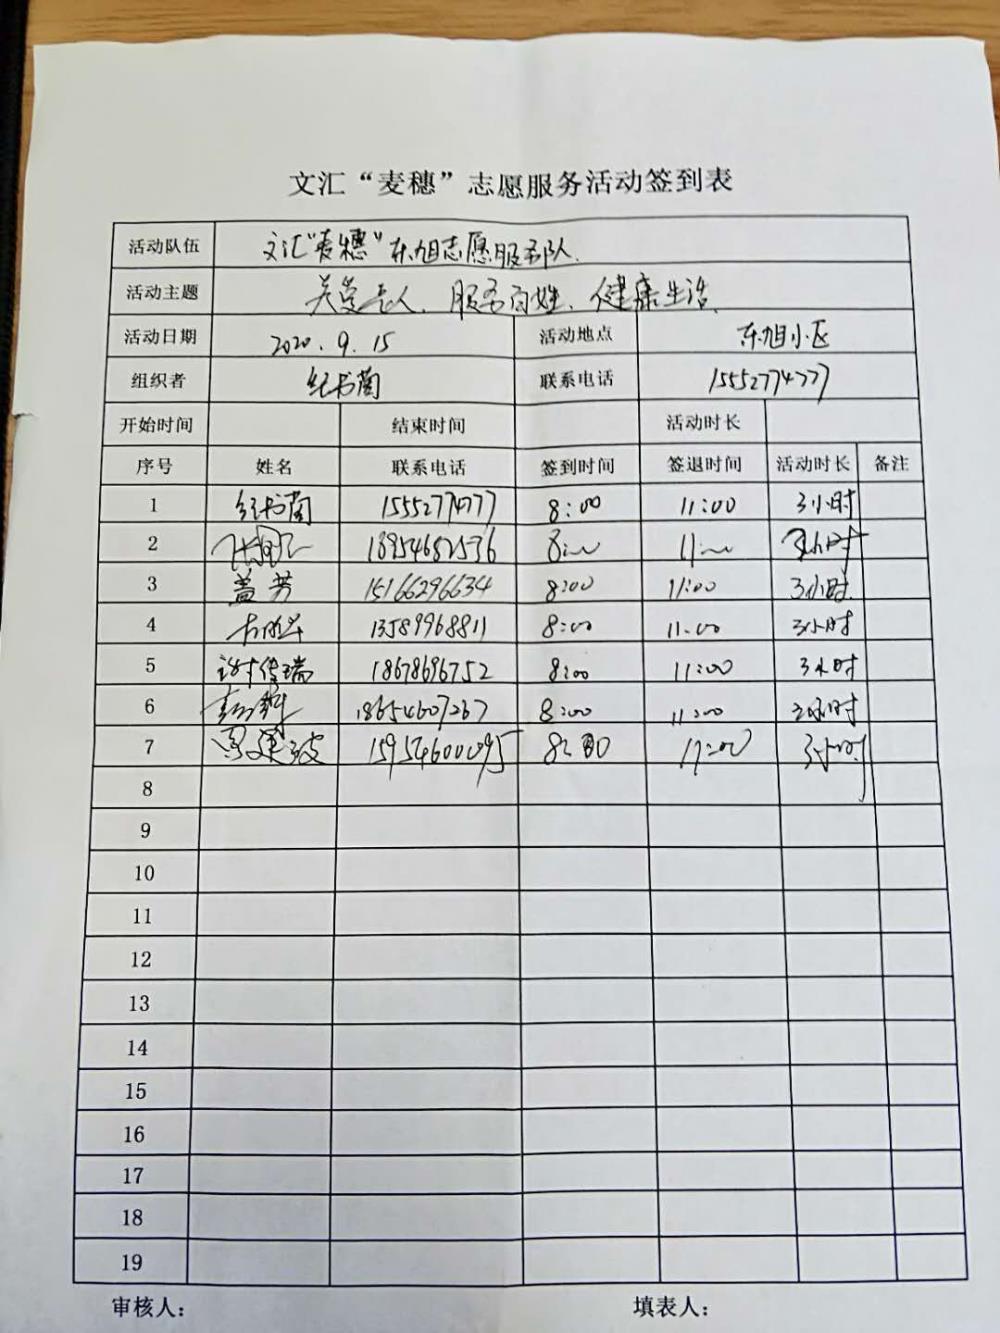 文汇“麦穗”志愿服务活动签到表
活动队伍 文汇“麦穗”东旭志愿服务队.
活动主题 关爱老人、服务百姓、健康生活.
活动日期 2020.9.15 活动地点 东旭小区
组织者 纪书兰 联系电话 15552774777
开始时间 结束时间 活动时长
序号 姓名 联系电话 签到时间 签退时间 活动时长 备注
1 纪书兰 15552774777 8:00 11:00 3小时
2 18954682536 8:00 11:00 3小时
3 盖芳 15166296634 8:00 11:00 3小时
4 13589968811 8:00 11:00 3小时
5 许传瑞 18678696752 8:00 11:00 3小时
6 18654607267 8:00 11:00 3小时
7 15954600095 8:00 11:00 3小时
8
9
10
11
12
13
14
15
16
17
18
19
审核人： 填表人：